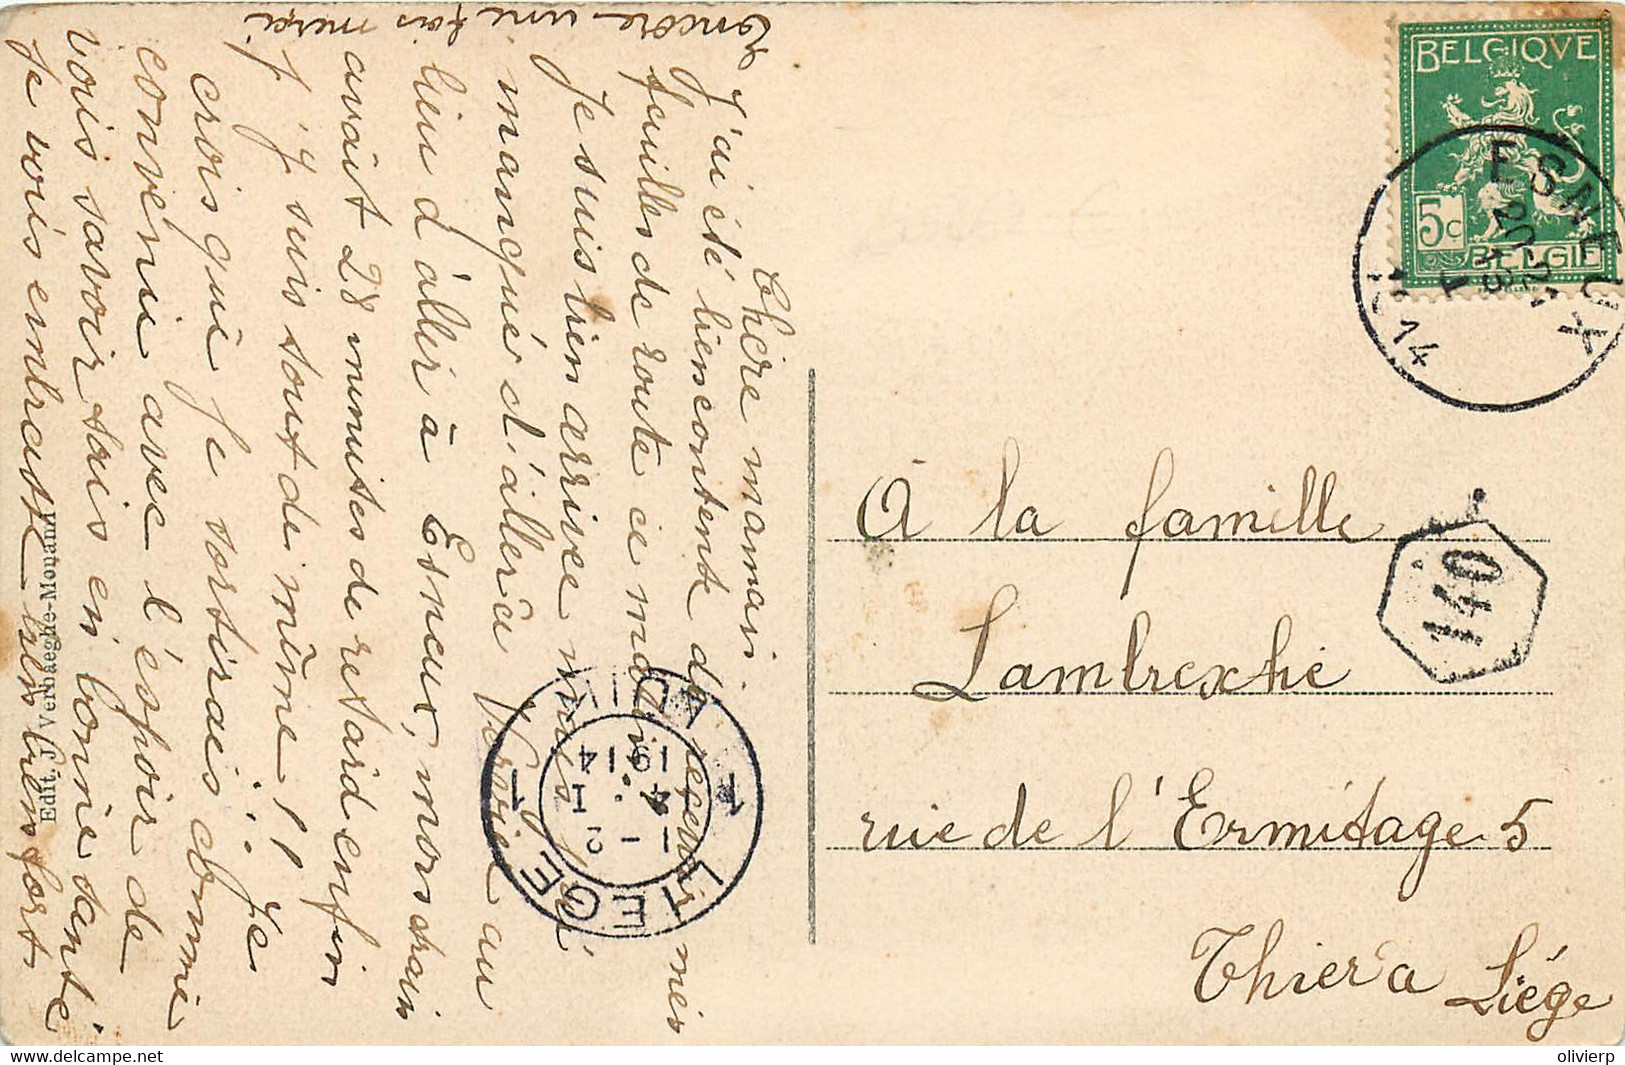 Chère maman
J'ai été bien contente de recevoir mes
feuilles de route ce matin
Je suis bien arrivée mais j'ai
manqué d'aller à Visé au
lieu d'aller à Esneux, mon train
avait 28 minutes de retard enfin
j'y suis tout de même !! Je
crois que je sortirais comme
convénu avec l'éspoir de
vous savoir tous en bonne santé
Je vous embrasse bien bien fort
Encore une fois merci
Edit. J. Verhaeghe-Mouanut
BELGIQVE
5c
BELGIË
ESNEUX
1914
A la famille
Lambrexhe
rue de l'Ermitage 5
Thier à Liége
140
LIEGE
LUIK
1914
delcampe.net
olivierp